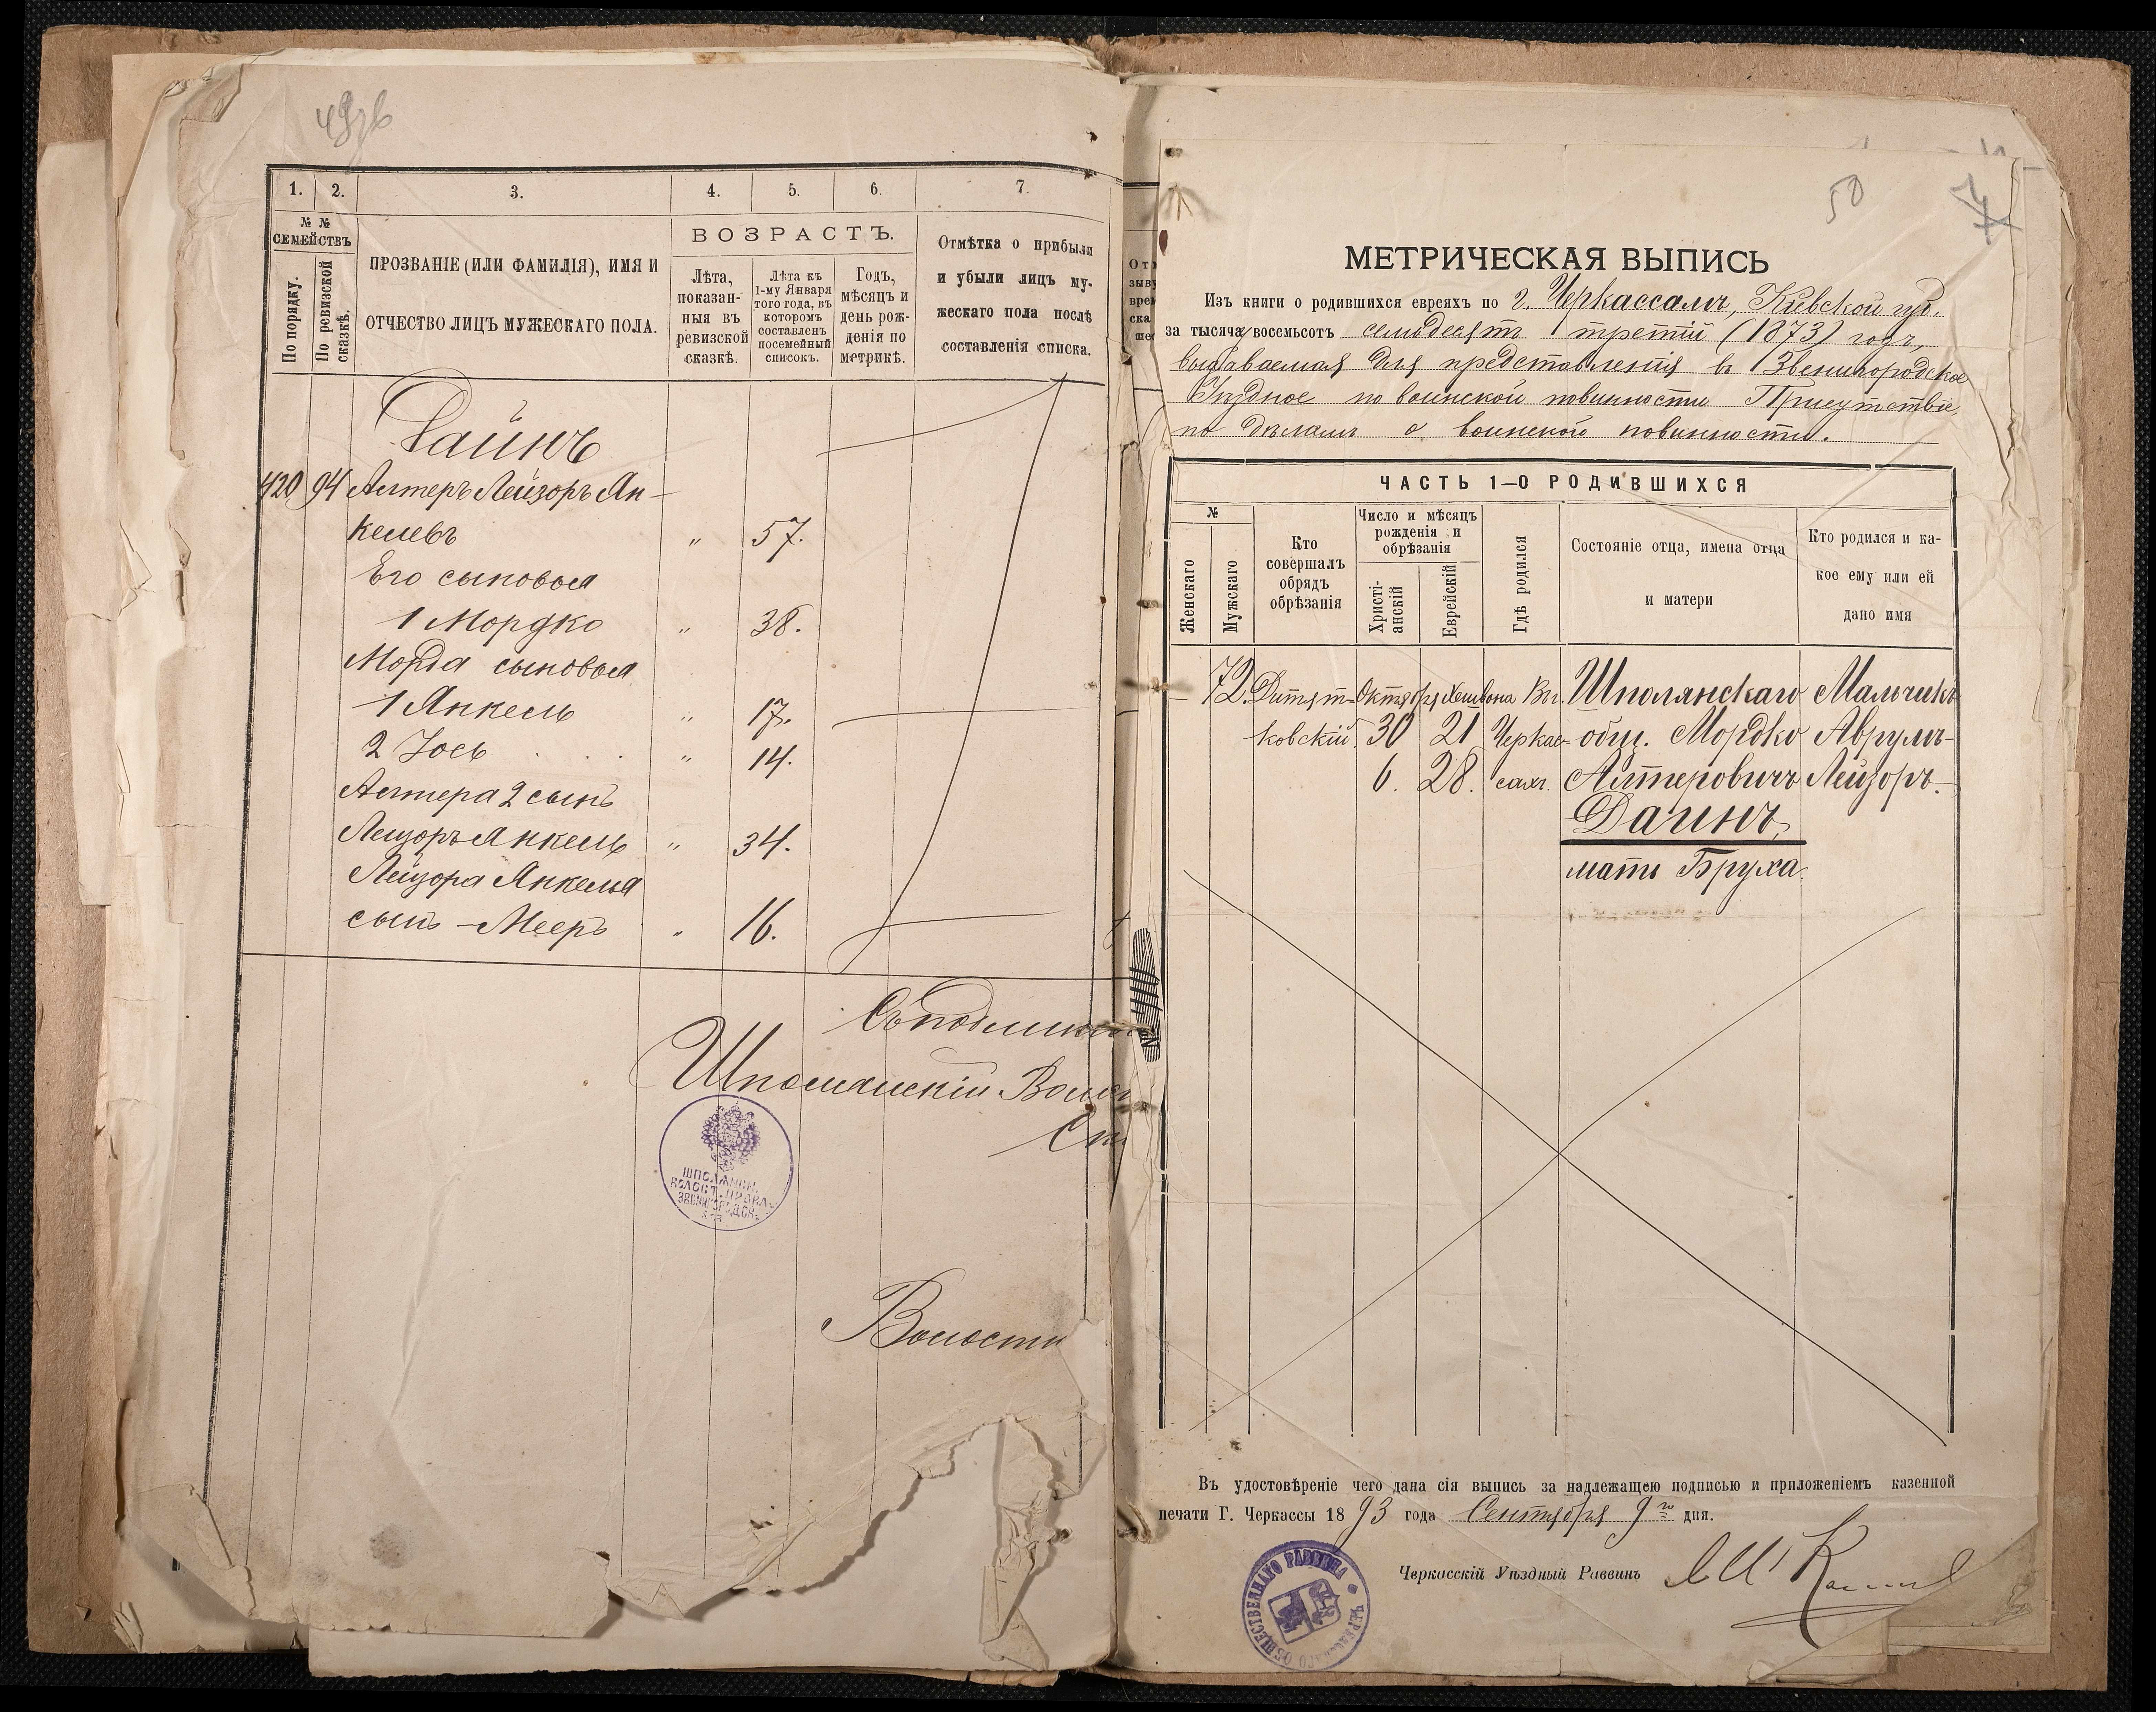 1. 2. 3. 4. 5. 6. 7.
№ № СЕМЕЙСТВЪ
По порядку.
По ревизской сказкѣ.
ПРОЗВАНІЕ (ИЛИ ФАМИЛІЯ), ИМЯ И
ОТЧЕСТВО ЛИЦЪ МУЖЕСКАГО ПОЛА.
ВОЗРАСТЪ.
Лѣта, показан-
ныя въ
ревизской
сказкѣ.
Лѣта къ
1-му Января
того года, въ
которомъ
составленъ
посемейный
списокъ.
Годъ,
мѣсяцъ и
день рож-
денія по
метрикѣ.
Отмѣтка о прибыли
и убыли лицъ му-
жескаго пола послѣ
составленія списка.
Даинъ
420 94 Алтеръ Лейзоръ Ян-
келевъ " 57.
Его сыновья
1 Мордко " 38.
Морда сыновья
1 Янкель " 17.
2 Іось " 14.
Алтера 2 сынъ
Лейзоръ Янкель " 34.
Лейзора Янкеля
сынъ - Мееръ " 16.
Съ подлинн
Шполянскій Волос
Ст
ШПОЛЯНСК.
ВОЛОСТ. ПРАВЛ.
ЗВЕНИГОРОДСК.
Волостн
50
МЕТРИЧЕСКАЯ ВЫПИСЬ
Изъ книги о родившихся евреяхъ по г. Черкассамъ, Кіевской губ.
за тысяча восемьсотъ семьдесятъ третій (1873) годъ,
выдаваемая для представленія въ Звенигородское
Уѣздное по воинской повинности Присутствіе
по дѣламъ о воинской повинности.
ЧАСТЬ 1—О РОДИВШИХСЯ
№
Женскаго
Мужскаго
Кто
совершалъ
обрядъ
обрѣзанія
Число и мѣсяцъ
рожденія и
обрѣзанія
Христі-
анскій
Еврейскій
Гдѣ родился
Состояніе отца, имена отца
и матери
Кто родился и ка-
кое ему или ей
дано имя
— 72. Дитят- Октября Хешвона Въ. Шполянскаго Мальчикъ
ковскій 30 21 Черкас- общ. Мордко Аврумъ-
6. 28. сахъ. Алтеровичъ Лейзоръ.
Даинъ,
мать Бруха.
Въ удостовѣреніе чего дана сія выпись за надлежащею подписью и приложеніемъ казенной
печати Г. Черкассы 1893 года Сентября 9го дня.
Черкасскій Уѣздный Раввинъ
ЧЕРКАССКАГО ОБЩЕСТВЕННАГО РАВВИНА